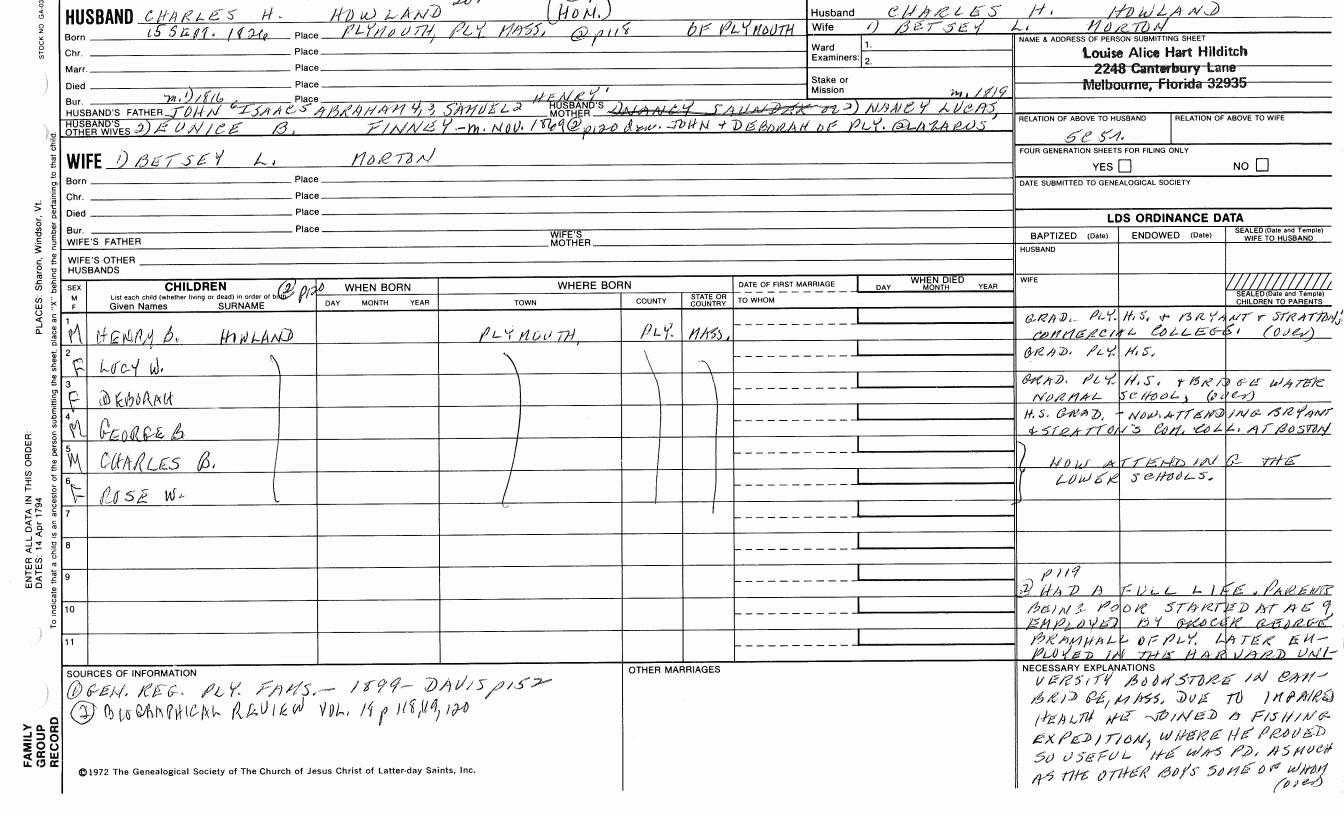 HUSBAND CHARLES H. HOWLAND (HOM.)
Born 15 SEPT. 1826 Place PLYMOUTH, PLY MASS. @p118 OF PLYMOUTH
Chr. Place
Marr. Place
Died Place
Bur. m.1) 1816 Place HENRY' m. 1819
HUSBAND'S FATHER JOHN 6 ISAAC5 ABRAHAM 4,3, SAMUEL2 HUSBAND'S MOTHER 2) NANCY LUCAS,
HUSBAND'S OTHER WIVES 2) EUNICE B. FINNEY -m. NOV. 1869 @ p120 dau. JOHN + DEBORAH OF PLY. @LAZARUS,
Husband CHARLES H. HOWLAND
Wife 1) BETSEY L. MORTON
Ward Examiners: 1.
2.
Stake or Mission
NAME & ADDRESS OF PERSON SUBMITTING SHEET
Louise Alice Hart Hilditch
2248 Canterbury Lane
Melbourne, Florida 32935
RELATION OF ABOVE TO HUSBAND RELATION OF ABOVE TO WIFE
FOUR GENERATION SHEETS FOR FILING ONLY
YES NO
DATE SUBMITTED TO GENEALOGICAL SOCIETY
WIFE 1) BETSEY L. MORTON
Born Place
Chr. Place
Died Place
Bur. Place
WIFE'S FATHER WIFE'S MOTHER
WIFE'S OTHER HUSBANDS
LDS ORDINANCE DATA
BAPTIZED (Date) ENDOWED (Date) SEALED (Date and Temple) WIFE TO HUSBAND
HUSBAND
WIFE
SEALED (Date and Temple) CHILDREN TO PARENTS
SEX M F
CHILDREN (2) p120
List each child (whether living or dead) in order of birth
Given Names SURNAME
WHEN BORN
DAY MONTH YEAR
WHERE BORN
TOWN COUNTY STATE OR COUNTRY
DATE OF FIRST MARRIAGE
TO WHOM
WHEN DIED
DAY MONTH YEAR
1 M HENRY B. HOWLAND PLYMOUTH, PLY. MASS. GRAD. PLY. H.S. + BRYANT + STRATTON'S
COMMERCIAL COLLEGE. (over)
2 F LUCY W. GRAD. PLY. H.S.
3 F DEBORAH GRAD. PLY. H.S. + BRIDGEWATER
NORMAL SCHOOL, (over)
4 M GEORGE B H.S. GRAD. - NOW ATTENDING BRYANT
+ STRATTON'S COM. COLL. AT BOSTON
5 M CHARLES B. NOW ATTENDING THE
LOWER SCHOOLS.
6 F ROSE W.
7
8
9
10
11
p119
2) HAD A FULL LIFE. PARENTS
BEING POOR STARTED AT AGE 9,
EMPLOYED BY GROCER GEORGE
BRAMHALL OF PLY. LATER EM-
PLOYED IN THE HARVARD UNI-
NECESSARY EXPLANATIONS
VERSITY BOOKSTORE IN CAM-
BRIDGE, MASS. DUE TO IMPAIRED
HEALTH HE JOINED A FISHING
EXPEDITION, WHERE HE PROVED
SO USEFUL HE WAS PD. AS MUCH
AS THE OTHER BOYS SOME OF WHOM
(over)
SOURCES OF INFORMATION
① GEN. REG. PLY. FAMS. - 1899 - DAVIS p152
② BIOGRAPHICAL REVIEW VOL. 18 p 118,119,120
OTHER MARRIAGES
©1972 The Genealogical Society of The Church of Jesus Christ of Latter-day Saints, Inc.
FAMILY GROUP RECORD
ENTER ALL DATA IN THIS ORDER:
DATES: 14 Apr 1794
PLACES: Sharon, Windsor, Vt.
To indicate that a child is an ancestor of the person submitting the sheet, place an "X" behind the number pertaining to that child.